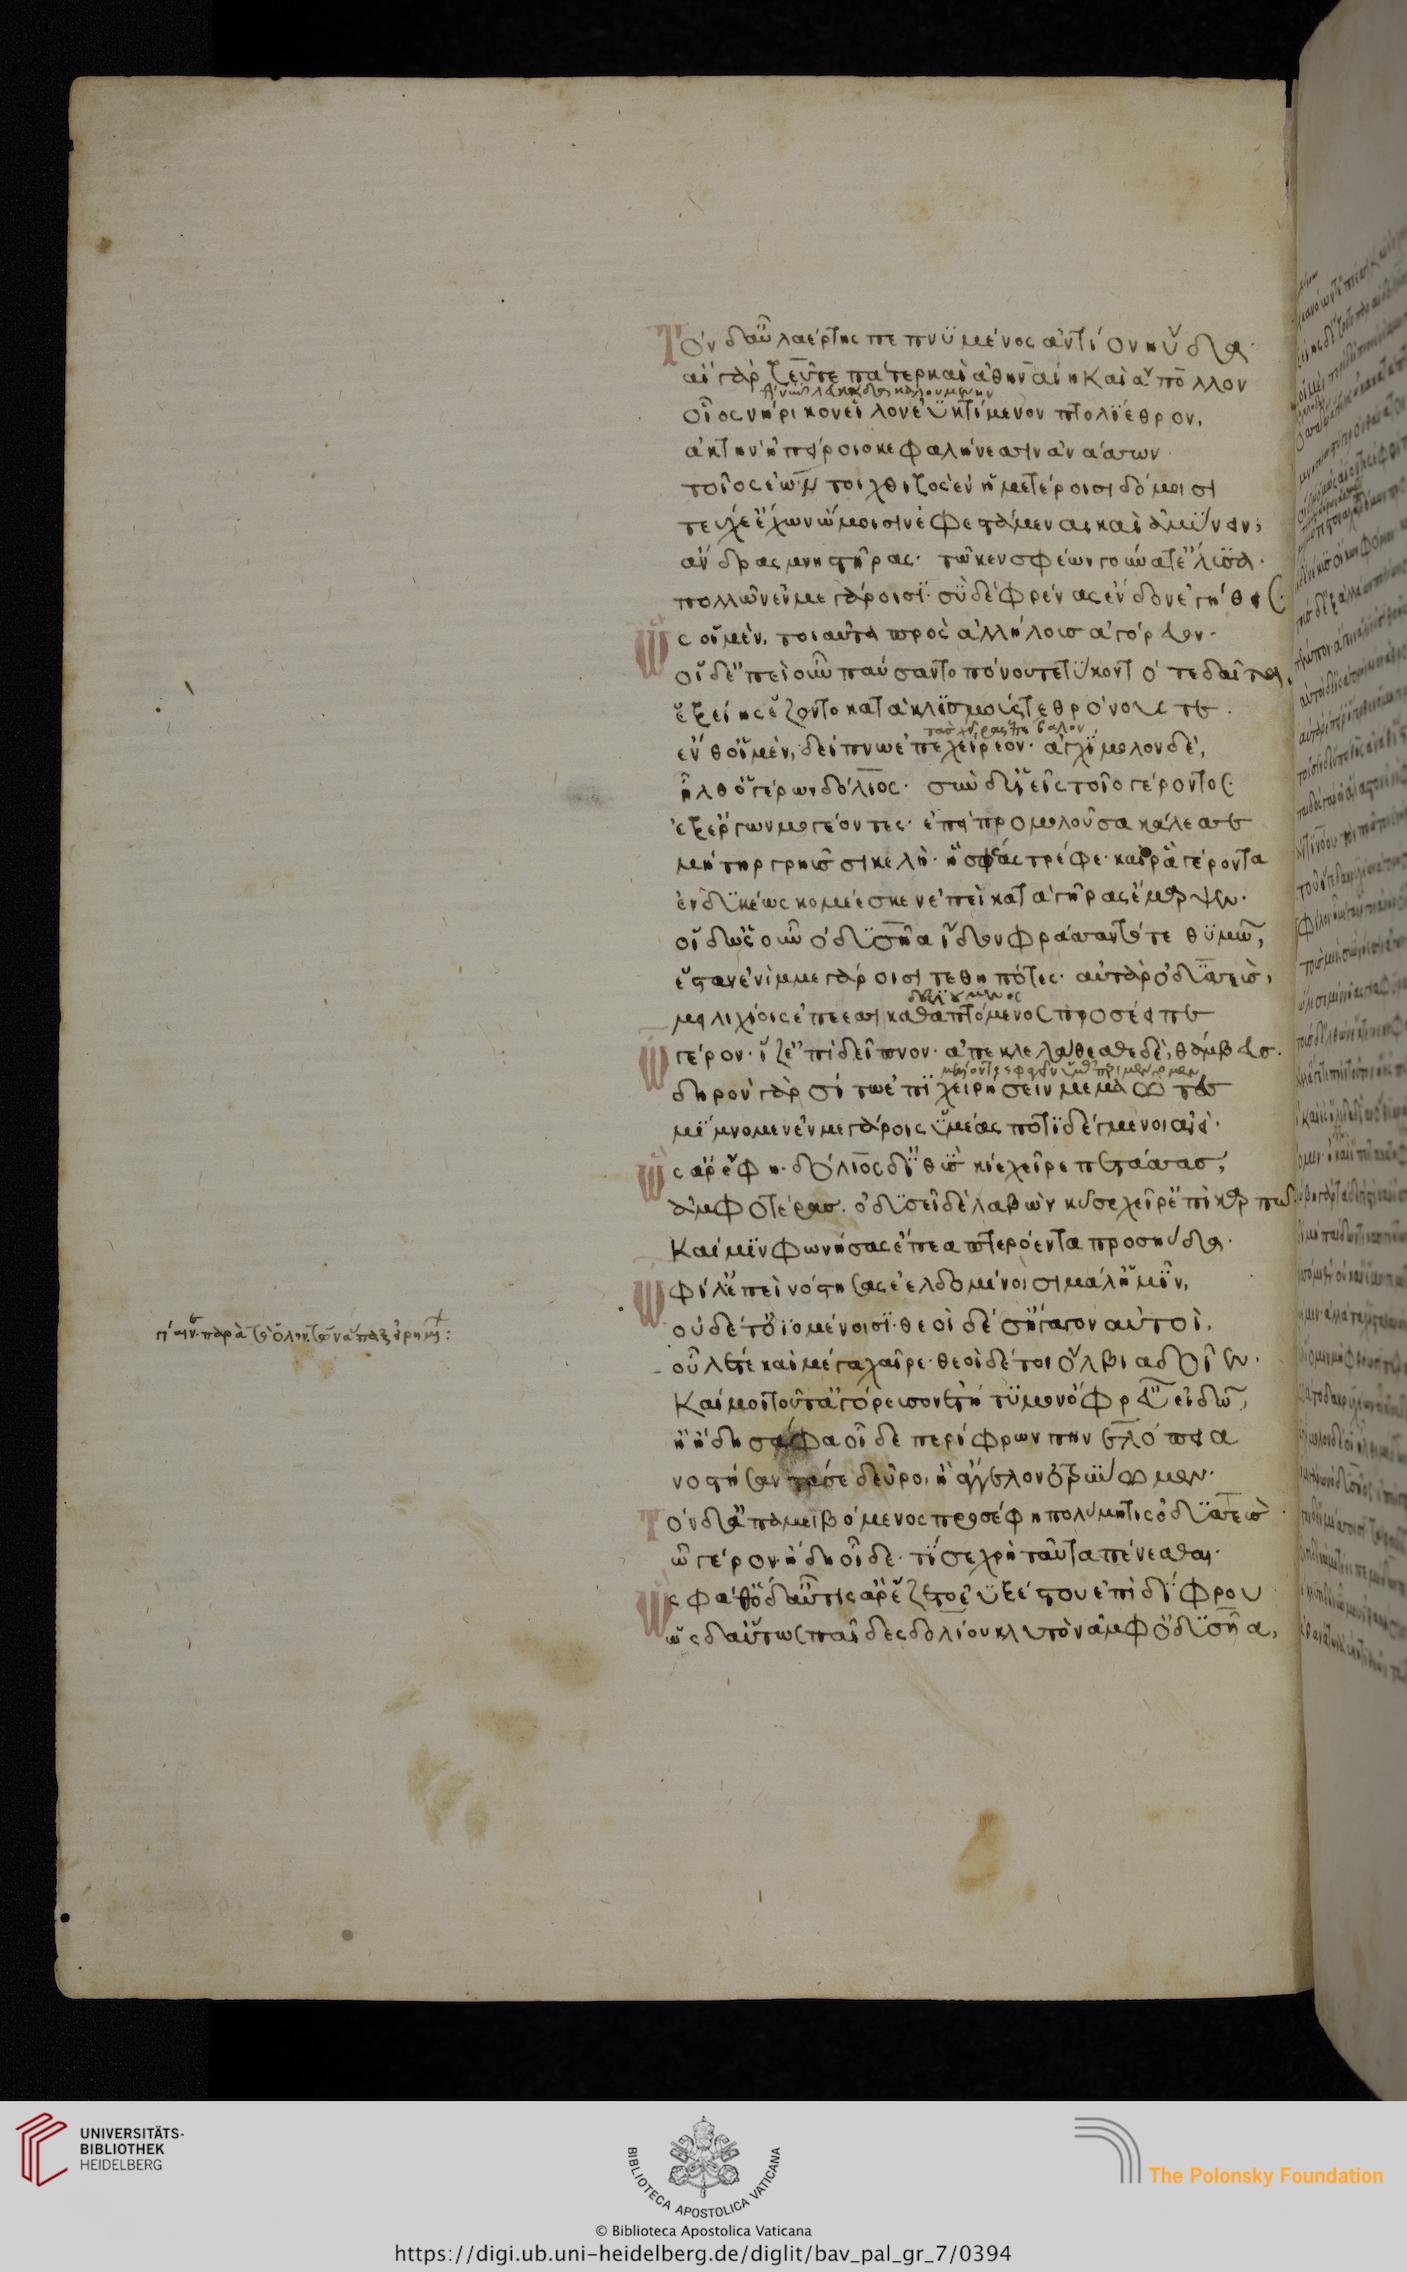 Τὸν δ' αὖ λαέρτης πεπνυμένος ἀντίον ηὔδα·
αἲ γὰρ ζεῦτε πάτερ καὶ ἀθηναίη καὶ ἄπολλον
οἷος νήρικον εἷλον ἐϋκτίμενον πτολίεθρον,
ἀκτὴν ἠπείροιο κεφαλήνεσσιν ἀνάσσων
τοῖος ἐών τοι χθιζὸς ἐν ἡμετέροισι δόμοισι
τεύχε' ἔχων ὤμοισιν ἐφεστάμεναι καὶ ἀμύνειν,
ἄνδρας μνηστῆρας· τῶ κεν σφέων γούνατ' ἔλυσα·
πολλῶν ἐν μεγάροισι· σὺ δὲ φρένας ἔνδον ἐγήθεις·
Ὣς οἱ μὲν, τοιαῦτα πρὸς ἀλλήλοισ ἀγόρευον·
οἱ δ' ἐπεὶ οὖν παύσαντο πόνου τετύκοντό τε δαῖτα,
ἑξείης ἕζοντο κατὰ κλισμούς τε θρόνους τε.
ἔνθ' οἱ μὲν, δείπνω ἐπεχείρεον· ἀγχίμολον δὲ,
ἦλθ' ὁ γέρων δόλιος· σὺν δ' υἱεῖς τοῖο γέροντος·
ἐξ ἔργων μογέοντες· ἐπεὶ προμολοῦσα κάλεσσε
μήτηρ γρηῦσ σικελὴ· ἥ σφεας τρέφε· καί ῥα γέροντα
ἐνδυκέως κομέεσκεν ἐπεὶ κατὰ γῆρας ἔμαρψεν·
οἱ δ' ὡς οὖν ὀδυσῆα ἴδον φράσσαντό τε θυμῶ,
ἔσταν ἐνὶ μμεγάροισι τεθηπότες· αὐτὰρ ὀδυσσεὺσ,
μειλιχίοις ἐπέεσσι καθαπτόμενος προσέειπε
Ὦ γέρον· ἵζ' ἐπὶ δεῖπνον· ἀπεκλελάθεσθε δὲ, θάμβευσ.
δηρὸν γὰρ σίτω ἐπιχειρήσειν μεμαῶτες
μίμνομεν ἐν μεγάροις ὑμέας ποτιδέγμενοι αἰεί·
Ὣς ἄρ' ἔφη· δόλιος δ' ἰθὺς κίε χεῖρε πετάσσας,
ἀμφοτέρασ· ὀδυσεῖ δὲ λαβὼν κύσε χεῖρ' ἐπὶ καρπῶ·
Καί μιν φωνήσας ἔπεα πτερόεντα προσηύδα·
Ὦ φίλ' ἐπεὶ νόστησας ἐελδομένοισι μάλ' ἡμῖν,
οὐδέ τ' ὀϊομένοισι· θεοὶ δέ σ' ἤγαγον αὐτοὶ,
οὖλέ τε καὶ μέγα χαῖρε· θεοὶ δέ τοι ὄλβια δοῖεν·
Καί μοι τοῦτ' ἀγόρευσον ἐτήτυμον ὄφρ' εὖ εἰδῶ,
ἢ ἤδη σάφα οἶδε περίφρων πηνελόπεια
νοστήσαντά σε δεῦρο, ἢ ἄγγελον ὀτρύνωμεν·
Τὸν δ' ἀπαμειβόμενος προσέφη πολύμητις ὀδυσσεὺσ·
ὦ γέρον· ἤδη οἶδε· τί σε χρὴ ταῦτα πένεσθαι·
Ὣς φάθ' ὁ δ' αὖτις ἄρ' ἕζετο ἐϋξέστου ἐπὶ δίφρου
ὣς δ' αὔτως παῖδες δολίου κλυτὸν ἀμφ' ὀδυσῆα,
UNIVERSITÄTS-
BIBLIOTHEK
HEIDELBERG
BIBLIOTECA APOSTOLICA VATICANA
The Polonsky Foundation
© Biblioteca Apostolica Vaticana
https://digi.ub.uni-heidelberg.de/diglit/bav_pal_gr_7/0394